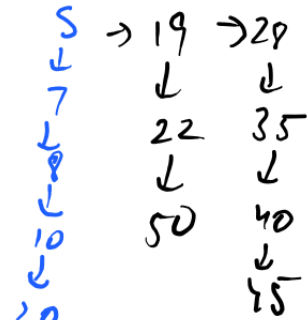 5 → 19 → 28
↓ ↓ ↓
7 22 35
↓ ↓ ↓
8 50 40
↓ ↓
10 45
↓